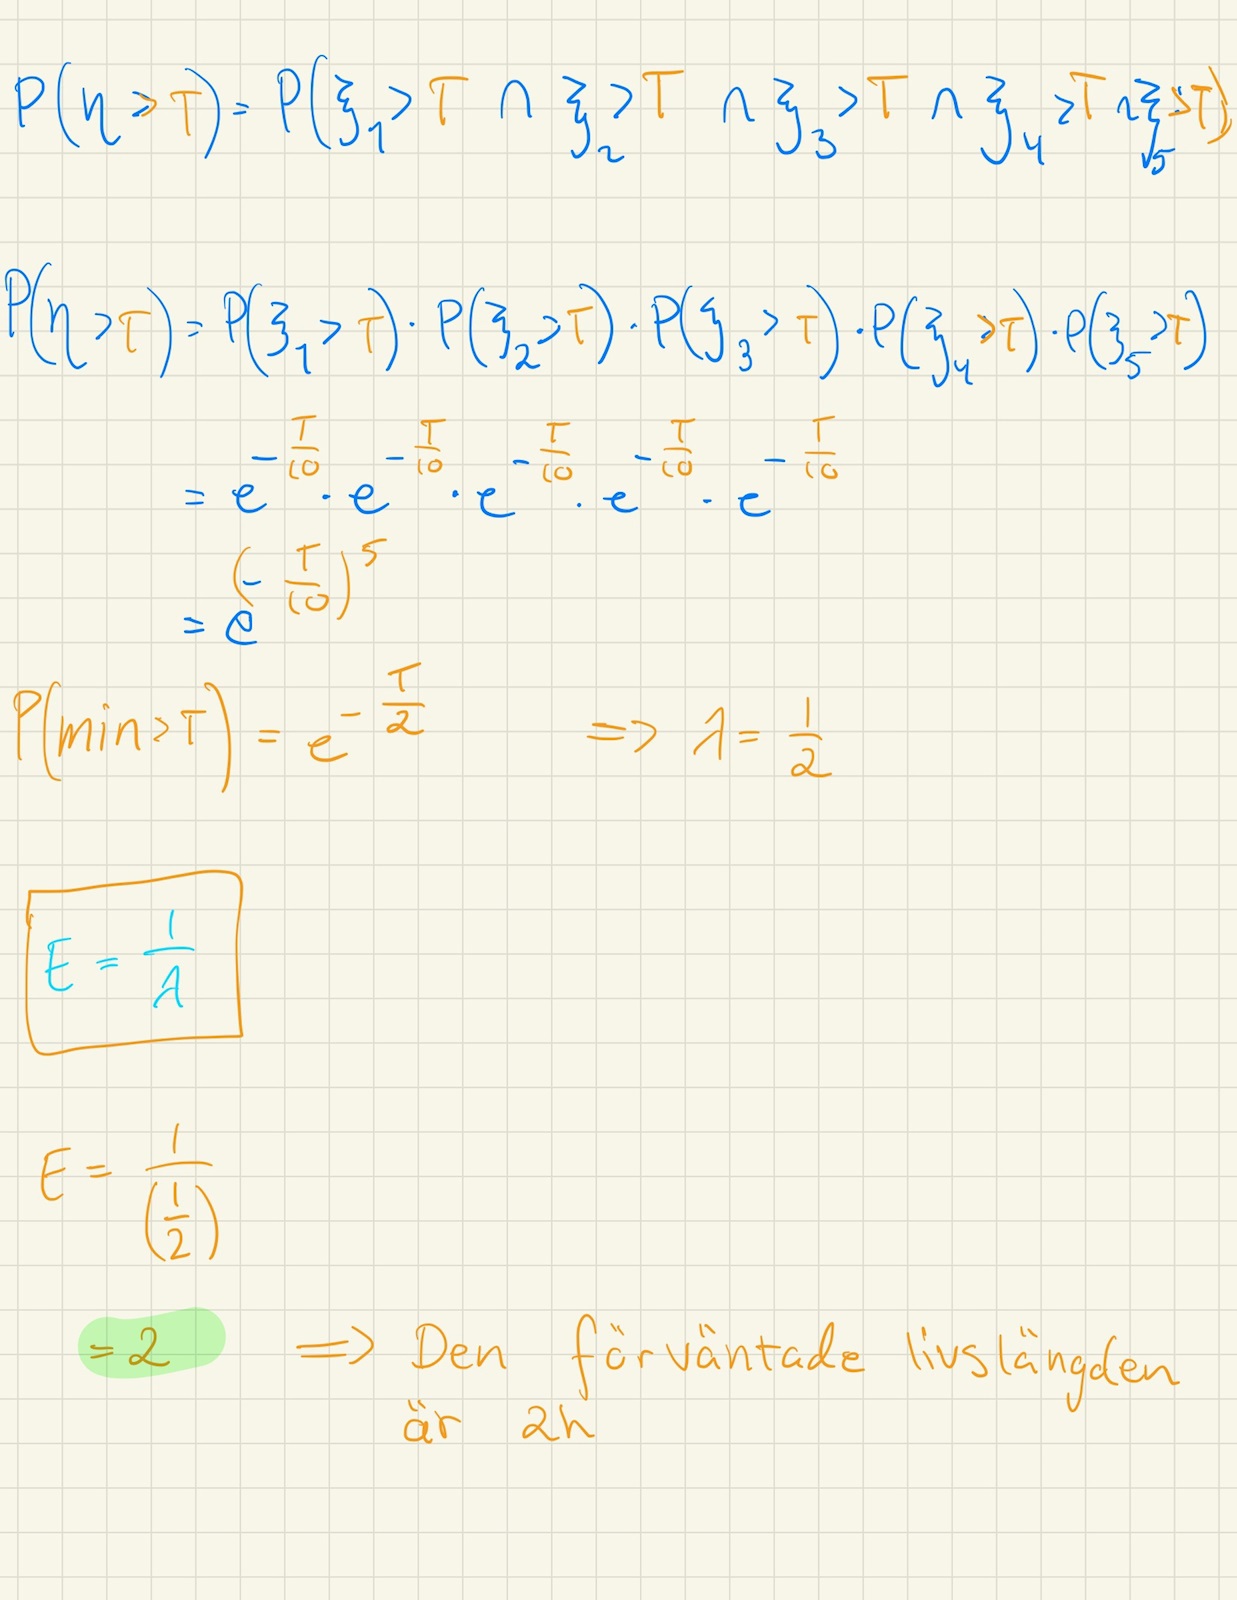 P(η > T) = P(ξ₁ > T ∩ ξ₂ > T ∩ ξ₃ > T ∩ ξ₄ > T ∩ ξ₅ > T)
P(η > T) = P(ξ₁ > T) · P(ξ₂ > T) · P(ξ₃ > T) · P(ξ₄ > T) · P(ξ₅ > T)
= e^(-T/10) · e^(-T/10) · e^(-T/10) · e^(-T/10) · e^(-T/10)
= e^(-T/10)^5
P(min > T) = e^(-T/2) => λ = 1/2
E = 1/λ
E = 1/(1/2)
= 2 => Den förväntade livslängden
är 2h